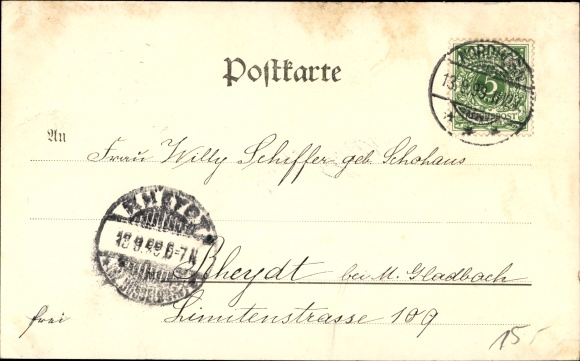 Postkarte
NORDHORN
13.9.99.
5
REICHSPOST
An
Frau Willy Schiffer geb. Schohaus
RHEYDT
13.9.99.6-7N
Rheydt bei M. Gladbach
frei
Limitenstrasse 109
15.-